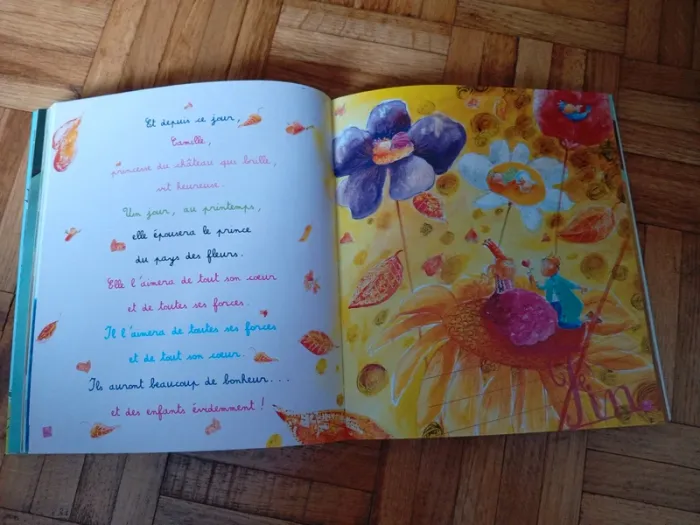 Et depuis ce jour,
Camille,
princesse du château qui brille,
vit heureuse.
Un jour, au printemps,
elle épousera le prince
du pays des fleurs.
Elle l'aimera de tout son cœur
et de toutes ses forces.
Il l'aimera de toutes ses forces
et de tout son cœur.
Ils auront beaucoup de bonheur...
et des enfants évidemment !
Fin